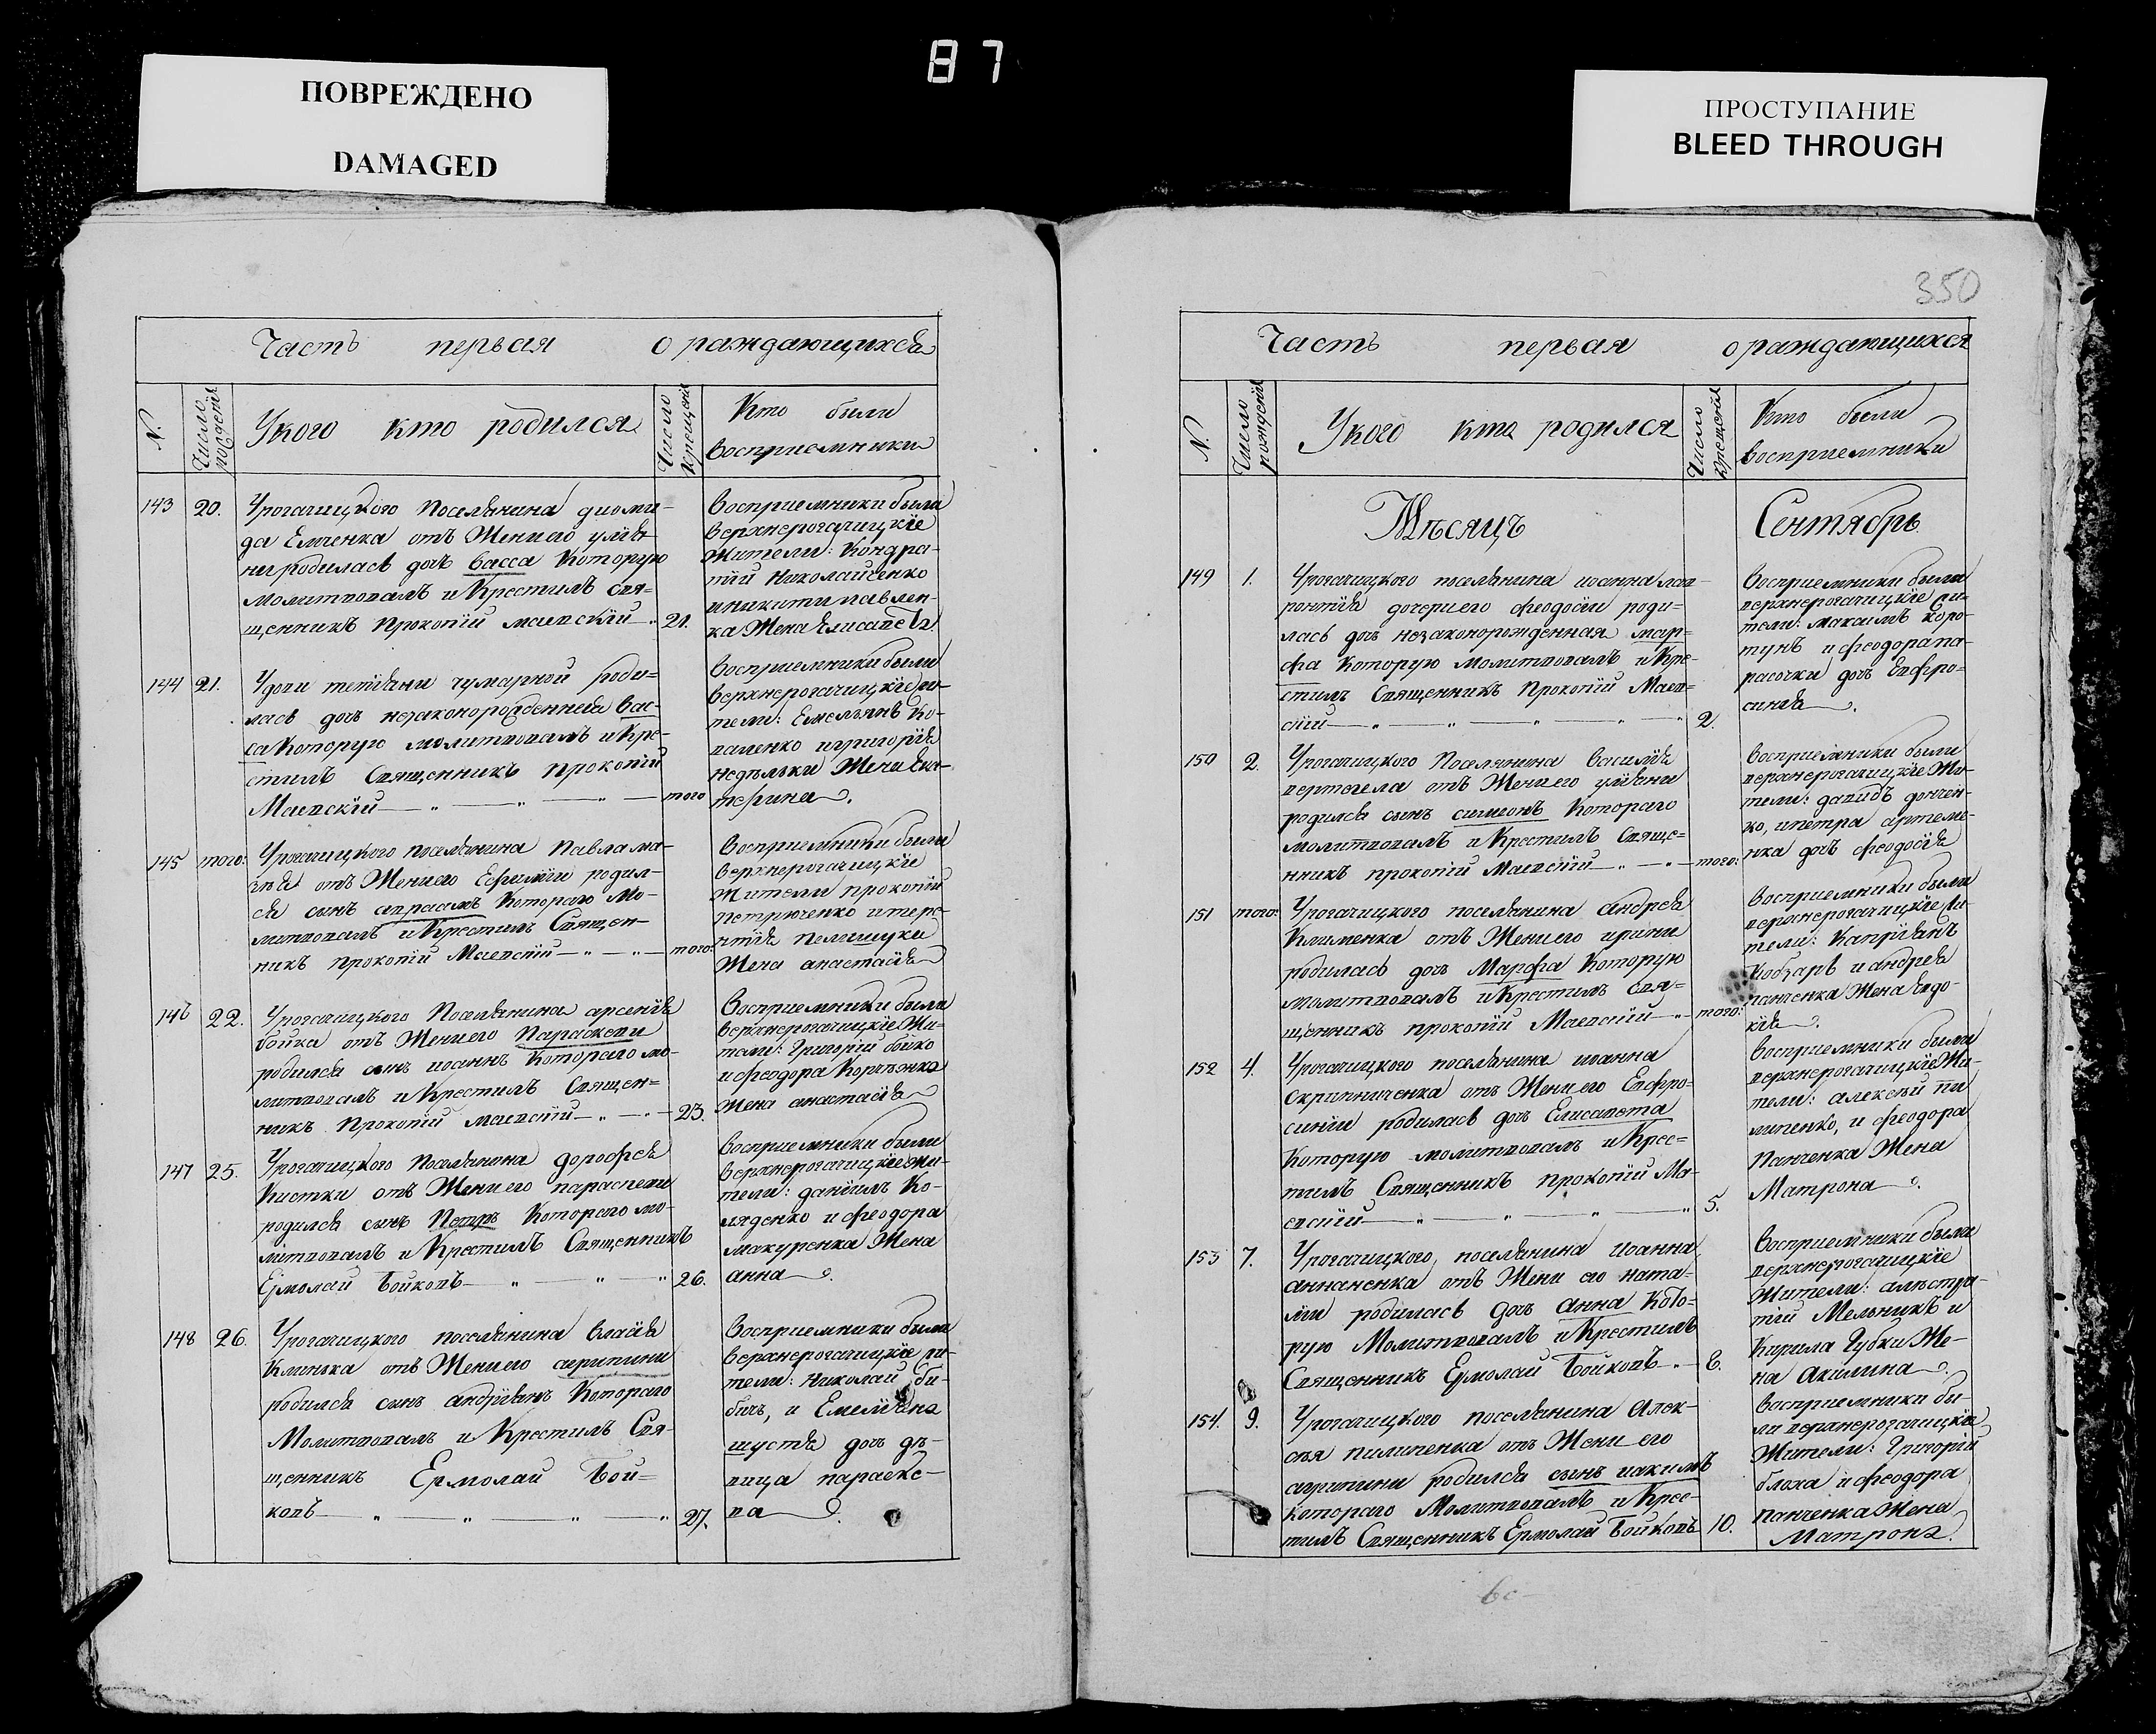 87
ПОВРЕЖДЕНО
DAMAGED
ПРОСТУПАНИЕ
BLEED THROUGH
350
Часть первая о раждающихся
N.
Число рождения
У кого кто родился
Число крещения
Кто были
восприемники
143 20.
Урогачицкого поселянина диоми-
да Емченка отъ Жени его улія-
ни родилась дочь васса Которую
молитвовалъ и Крестилъ Свя=
щенникъ Прокопій маевскій 21.
восприемники были
верхнерогачицкіе
Жители: Кондра-
тій Николайченко
и никити павлен-
ка Жена Елисавета
144 21.
Удови тетіяни чумарной роди=
лась дочь незаконорожденная Вас-
са Которую молитвовалъ и Кре-
стилъ Священникъ Прокопій
Маевскій того
восприемники были
верхнерогачицкіе жи-
тели: Емельянъ Ко-
валенко и григорія
недѣльки Жена Ека-
терина
145 того:
Урогачицкого поселянина Павла ма-
отъ Жени его Ефиміи родил-
ся сынъ авраамъ Которого Мо-
литвовалъ и Крестилъ Священ-
никъ Прокопій Маевскій того:
восприемники были
верхнерогачицкіе
Жители прокопій
петрюченко и тере-
нтія
Жена анастасія
146 22.
Урогачицкого Поселянина арсенія
бойка отъ Жени его Параскеви
родился сынъ иоаннъ Которого мо-
литвовалъ и Крестилъ Священ=
никъ Прокопій маевскій 23.
Восприемники были
верхнерогачицкіе Жи-
тели: Григорій бойко
и феодора
Жена анастасія
147 25.
Урогачицкого Поселянина дорофея
Кистки отъ Жени его параскеви
родился сынъ Петръ Которого мо-
литвовалъ и Крестилъ Священникъ
Ермолай Бойковъ 26.
восприемники были
верхнерогачицкіе жи-
тели: даніилъ Ко-
ляденко и феодора
макуренка Жена
анна
148 26.
Урогачицкого поселянина власія
Климка отъ Жени его агрипини
родился сынъ андріянъ Которого
Молитвовалъ и Крестилъ Свя-
щенникъ Ермолай Бой=
ковъ 27.
Восприемники были
верхнерогачицкіе жи-
тели: Николай би-
бичъ, и Емеліяна
шустя дочь дѣ-
вица параске-
ва
Часть первая о раждающихся
N.
Число рождения
У кого кто родился
Число крещения
Кто были
восприемники
Мѣсяцъ Сентябрь
149 1.
Урогачицкого поселянина иоанна лав-
ронтія дочери его феодосіи роди=
лась дочь незаконорожденная мар=
фа Которую молитвовалъ и Кре-
стилъ Священникъ Прокопій Маев=
скій 2.
восприемники были
верхнерогачицкіе жи-
тели: максимъ коро-
тунъ и феодора па-
расочки дочь Евфро=
синія
150 2.
Урогачицкого Поселянина василія
вертегела отъ Жени его уліяни
родился сынъ симеонъ Которого
молитвовалъ и Крестилъ Свяще=
нникъ прокопій Маевскій того:
восприемники были
верхнерогачицкіе Жи-
тели: давидъ дончен-
ко, и петра артеме-
нка дочь феодосія
151 того:
Урогачицкого поселянина андрея
Клименка отъ Жени его ирини
родилась дочь Марфа Которую
молитвовалъ и Крестилъ свя=
щенникъ прокопій Маевскій того:
Восприемники были
верхнерогачицкіе жи-
тели: Капріянъ
Кобзарь и андрея
панченка Жена Евдо-
кія
152 4.
Урогачицкого поселянина иоанна
Скрипниченка отъ Жени его Евфро-
синіи родилась дочь Елисавета
Которую молитвовалъ и Крес=
тилъ Священникъ прокопій Ма-
евскій 5.
Восприемники были
верхнерогачицкіе Жи-
тели: алексѣй пи
липенко, и феодора
Панченка Жена
Матрона
153 7.
Урогачицкого поселянина иоанна
ананенка отъ Жени его ната-
ліи родилась дочь анна Кото-
рую Молитвовалъ и Крестилъ
Священникъ Ермолай Бойковъ 8.
Восприемники были
верхнерогачицкіе
Жители:
тій Мельникъ и
Кирила Губки Же-
на Акилина
154. 9.
Урогачицкого поселянина Алек-
сѣя пилипенка отъ Жени его
агрипини родился сынъ иакимъ
которого Молитвовалъ и Крес-
тилъ Священникъ Ермолай Бойковъ 10.
Восприемники бы-
ли верхнерогачицкіе
Жители: Григорій
блоха и феодора
панченка Жена
Матрона